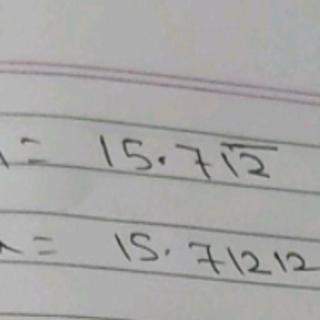 = 15.7\overline{12}
x = 15.71212